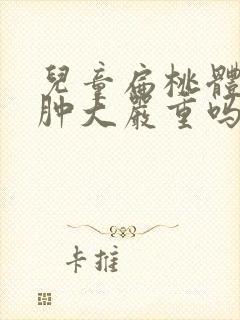 兒童扁桃體
肿大嚴重吗
卡推